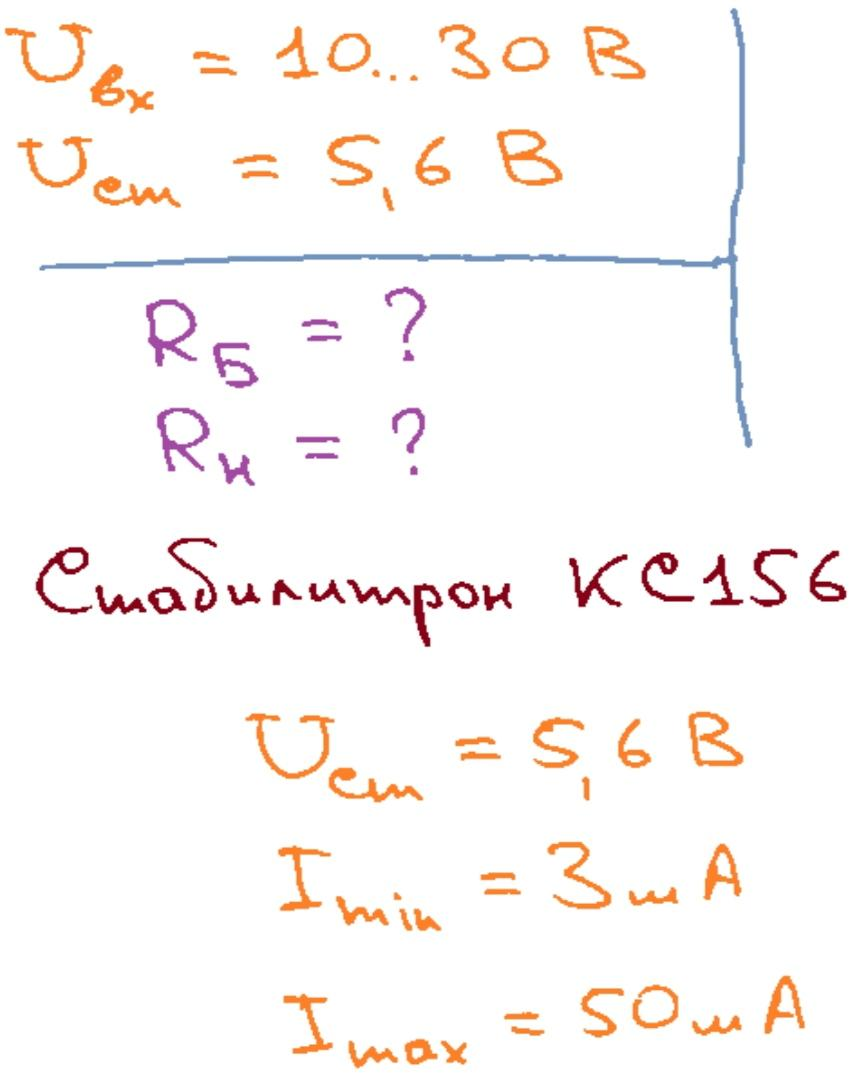 Uвх = 10...30 В
Uст = 5,6 В
RБ = ?
Rн = ?
Стабилитрон КС156
Uст = 5,6 В
Imin = 3 mA
Imax = 50 mA